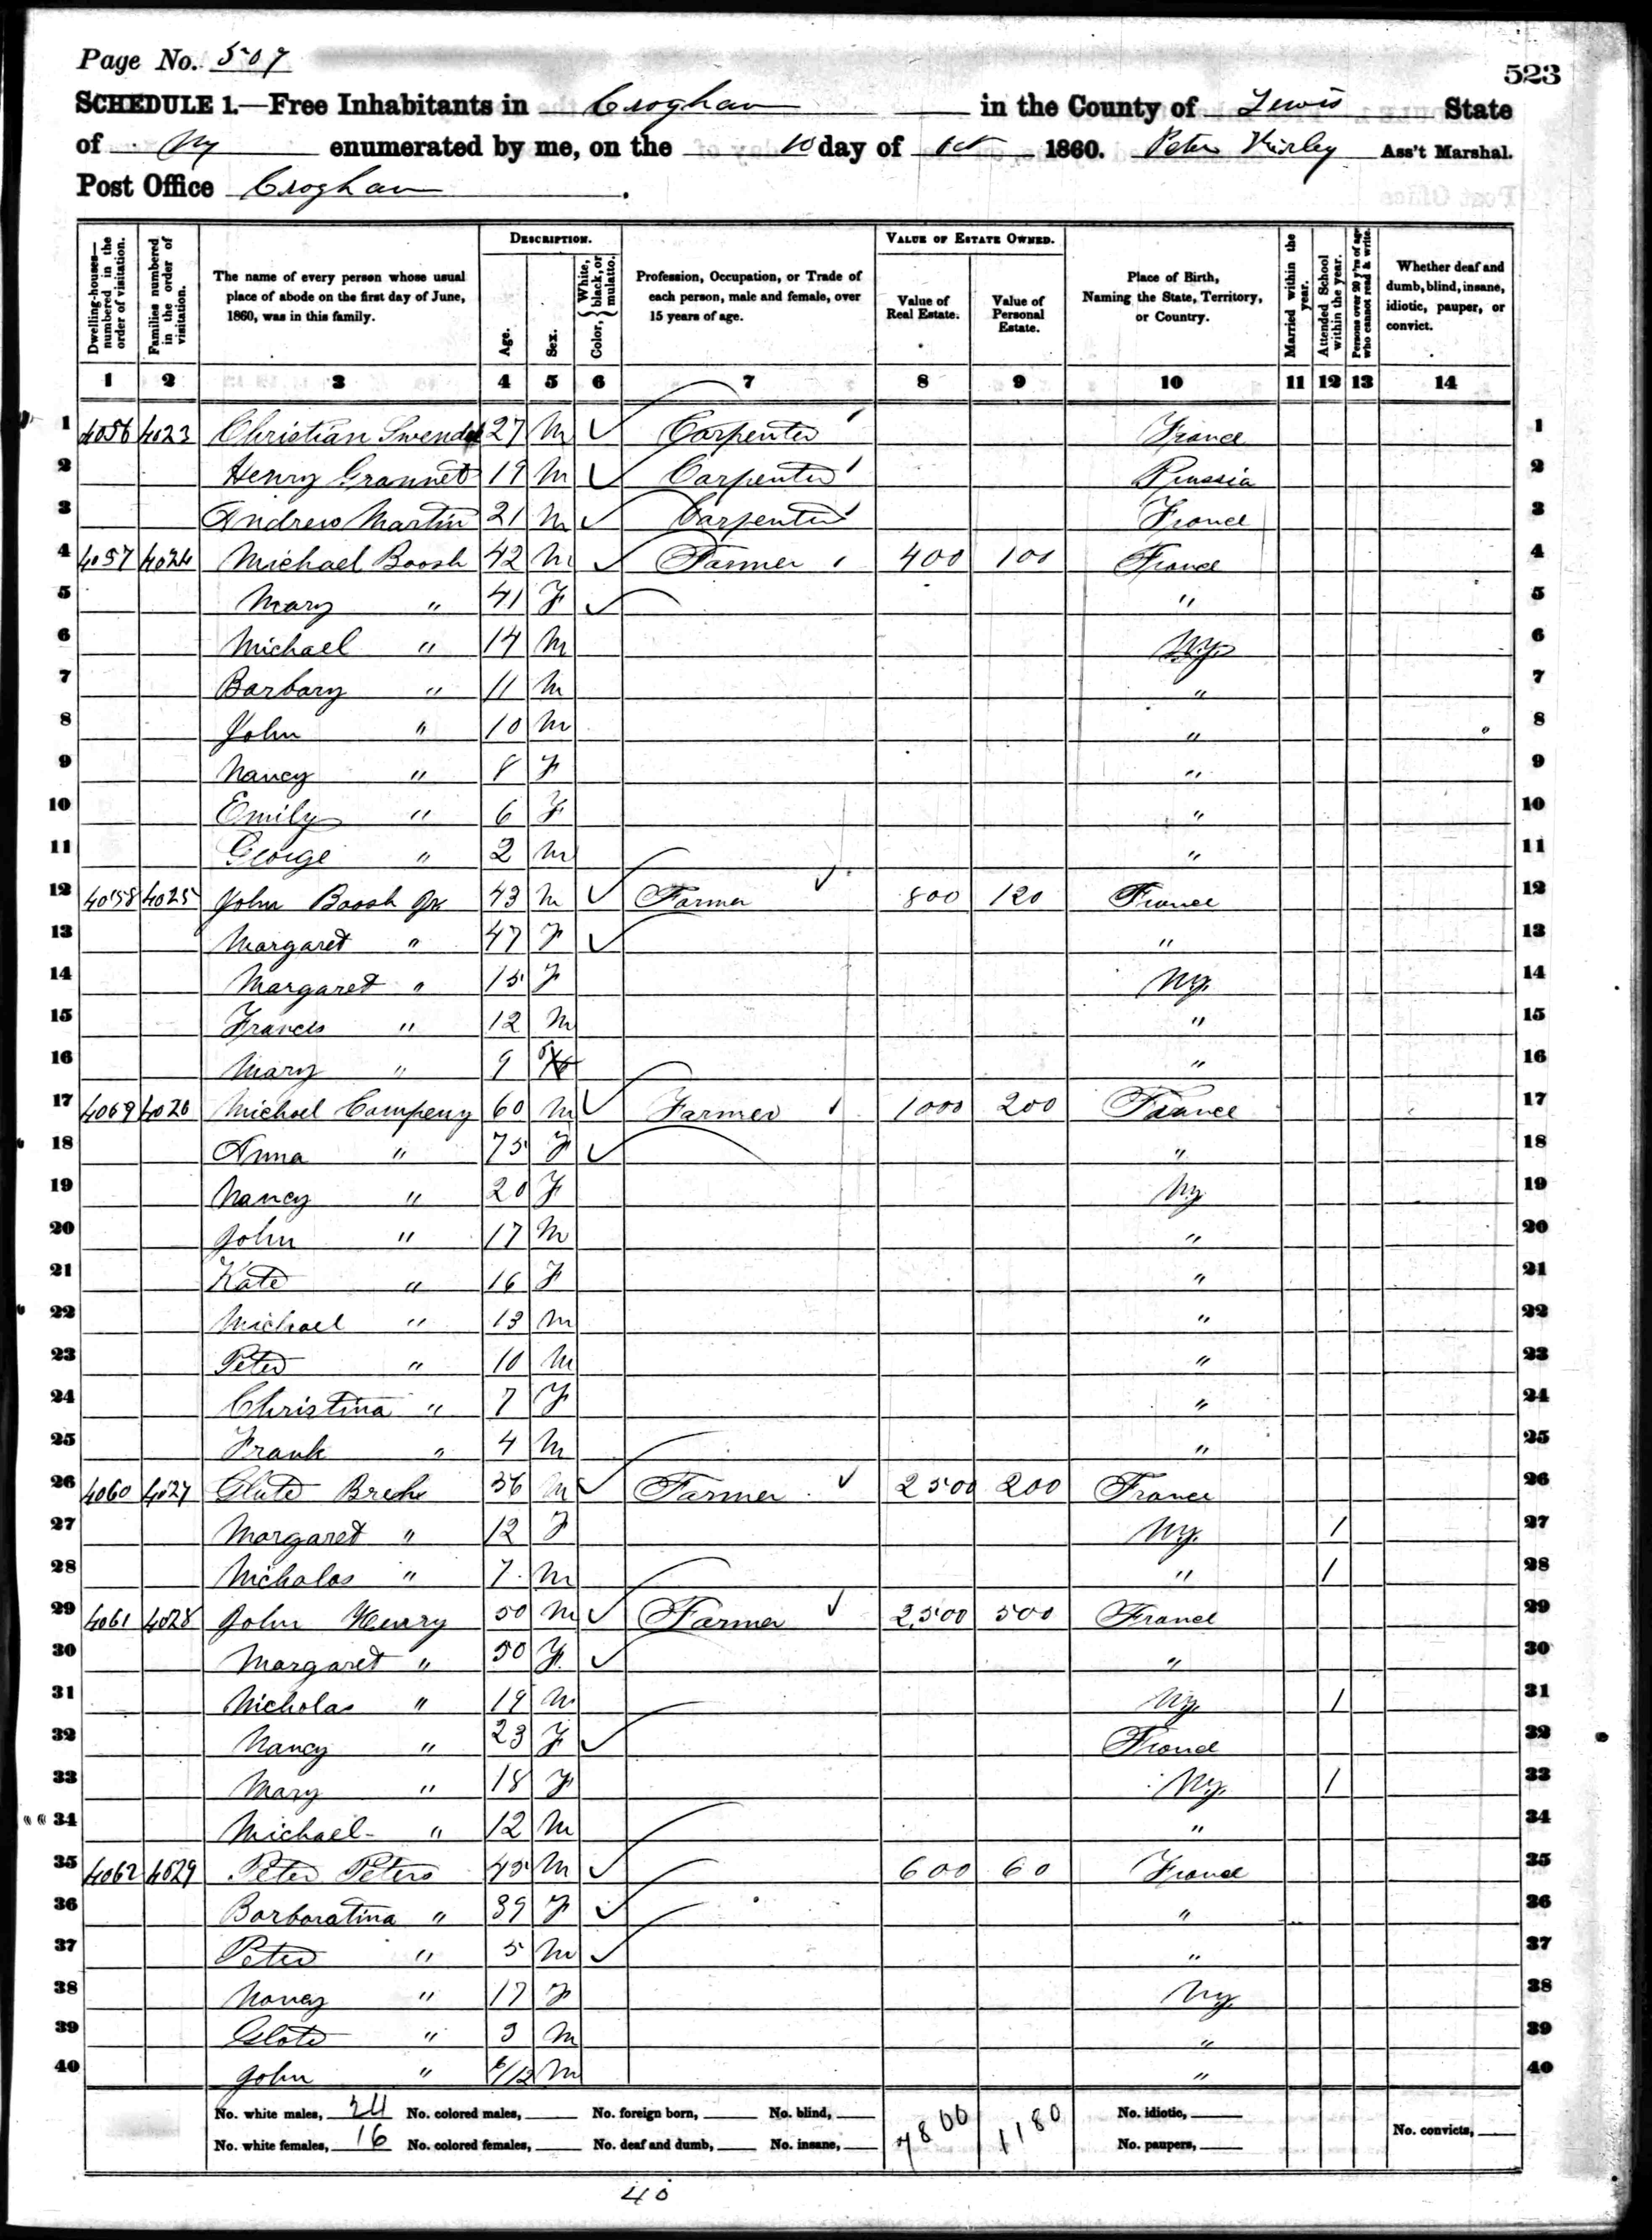 Page No. 507
523
SCHEDULE 1.—Free Inhabitants in Croghan in the County of Lewis State
of Ny enumerated by me, on the 10 day of Oct 1860. Peter Kirley Ass't Marshal.
Post Office Croghan.
Dwelling-houses—numbered in the order of visitation.
Families numbered in the order of visitation.
The name of every person whose usual place of abode on the first day of June, 1860, was in this family.
DESCRIPTION.
Age.
Sex.
Color, {White, black, or mulatto.
Profession, Occupation, or Trade of each person, male and female, over 15 years of age.
VALUE OF ESTATE OWNED.
Value of Real Estate.
Value of Personal Estate.
Place of Birth, Naming the State, Territory, or Country.
Married within the year.
Attended School within the year.
Persons over 20 y'rs of age who cannot read & write.
Whether deaf and dumb, blind, insane, idiotic, pauper, or convict.
1 2 3 4 5 6 7 8 9 10 11 12 13 14
1 4056 4023 Christian 27 M ✓ Carpenter France 1
2 Henry Grannet 19 M ✓ Carpenter Prussia 2
3 Andrew Martin 21 M ✓ Carpenter France 3
4 4057 4024 Michael Boosh 42 M ✓ Farmer 400 100 France 4
5 Mary " 41 F ✓ " 5
6 Michael " 14 M Ny. 6
7 Barbary " 11 M " 7
8 John " 10 M " 8
9 Nancy " 8 F " 9
10 Emily " 6 F " 10
11 George " 2 M " 11
12 4058 4025 John Boosh Jr 43 M ✓ Farmer ✓ 800 120 France 12
13 Margaret " 47 F ✓ " 13
14 Margaret " 15 F Ny. 14
15 Francis " 12 M " 15
16 Mary " 9 " 16
17 4069 4026 Michael Compeny 60 M ✓ Farmer 1000 200 France 17
18 Anna " 75 F ✓ " 18
19 Nancy " 20 F Ny 19
20 John " 17 M " 20
21 Kate " 16 F " 21
22 Michael " 13 M " 22
23 Peter " 10 M " 23
24 Christina " 7 F " 24
25 Frank " 4 M " 25
26 4060 4027 Glate Breche 36 M ✓ Farmer ✓ 2500 200 France 26
27 Margaret " 12 F Ny. 1 27
28 Nicholas " 7 M " 1 28
29 4061 4028 John Henry 50 M ✓ Farmer ✓ 2,500 500 France 29
30 Margaret " 50 F ✓ " 30
31 Nicholas " 19 M Ny. 1 31
32 Nancy " 23 F ✓ France 32
33 Mary " 18 F Ny. 1 33
34 Michael " 12 M " 34
35 4062 4029 Peter Peters 45 M ✓ 600 60 France 35
36 Barboratina " 39 F ✓ " 36
37 Peter " 5 M ✓ " 37
38 Nancy " 17 F Ny. 38
39 Glote " 3 M " 39
40 John " 6/12 M " 40
No. white males, 24 No. colored males, No. foreign born, No. blind, 7800 1180 No. idiotic,
No. white females, 16 No. colored females, No. deaf and dumb, No. insane, No. paupers, No. convicts,
40